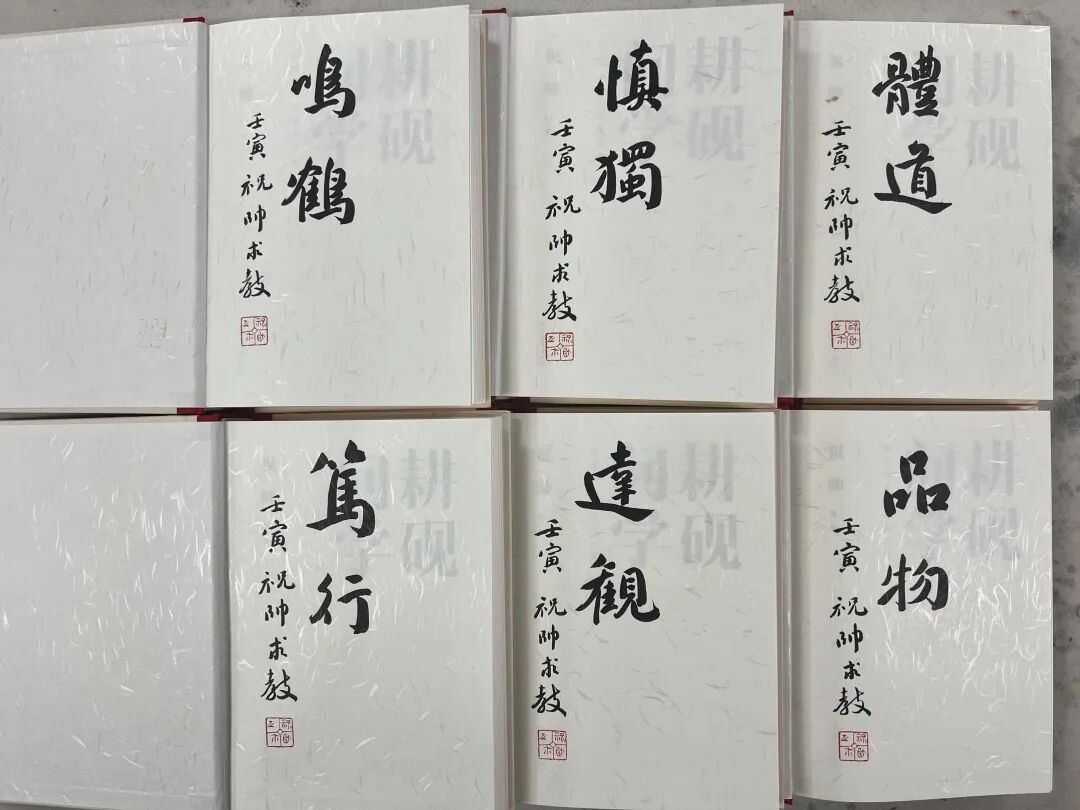 鳴鶴
壬寅 祝帥求教
慎獨
壬寅 祝帥求教
體道
壬寅 祝帥求教
篤行
壬寅 祝帥求教
達觀
壬寅 祝帥求教
品物
壬寅 祝帥求教
耕砚
耕砚
耕砚
耕砚
耕砚
耕砚